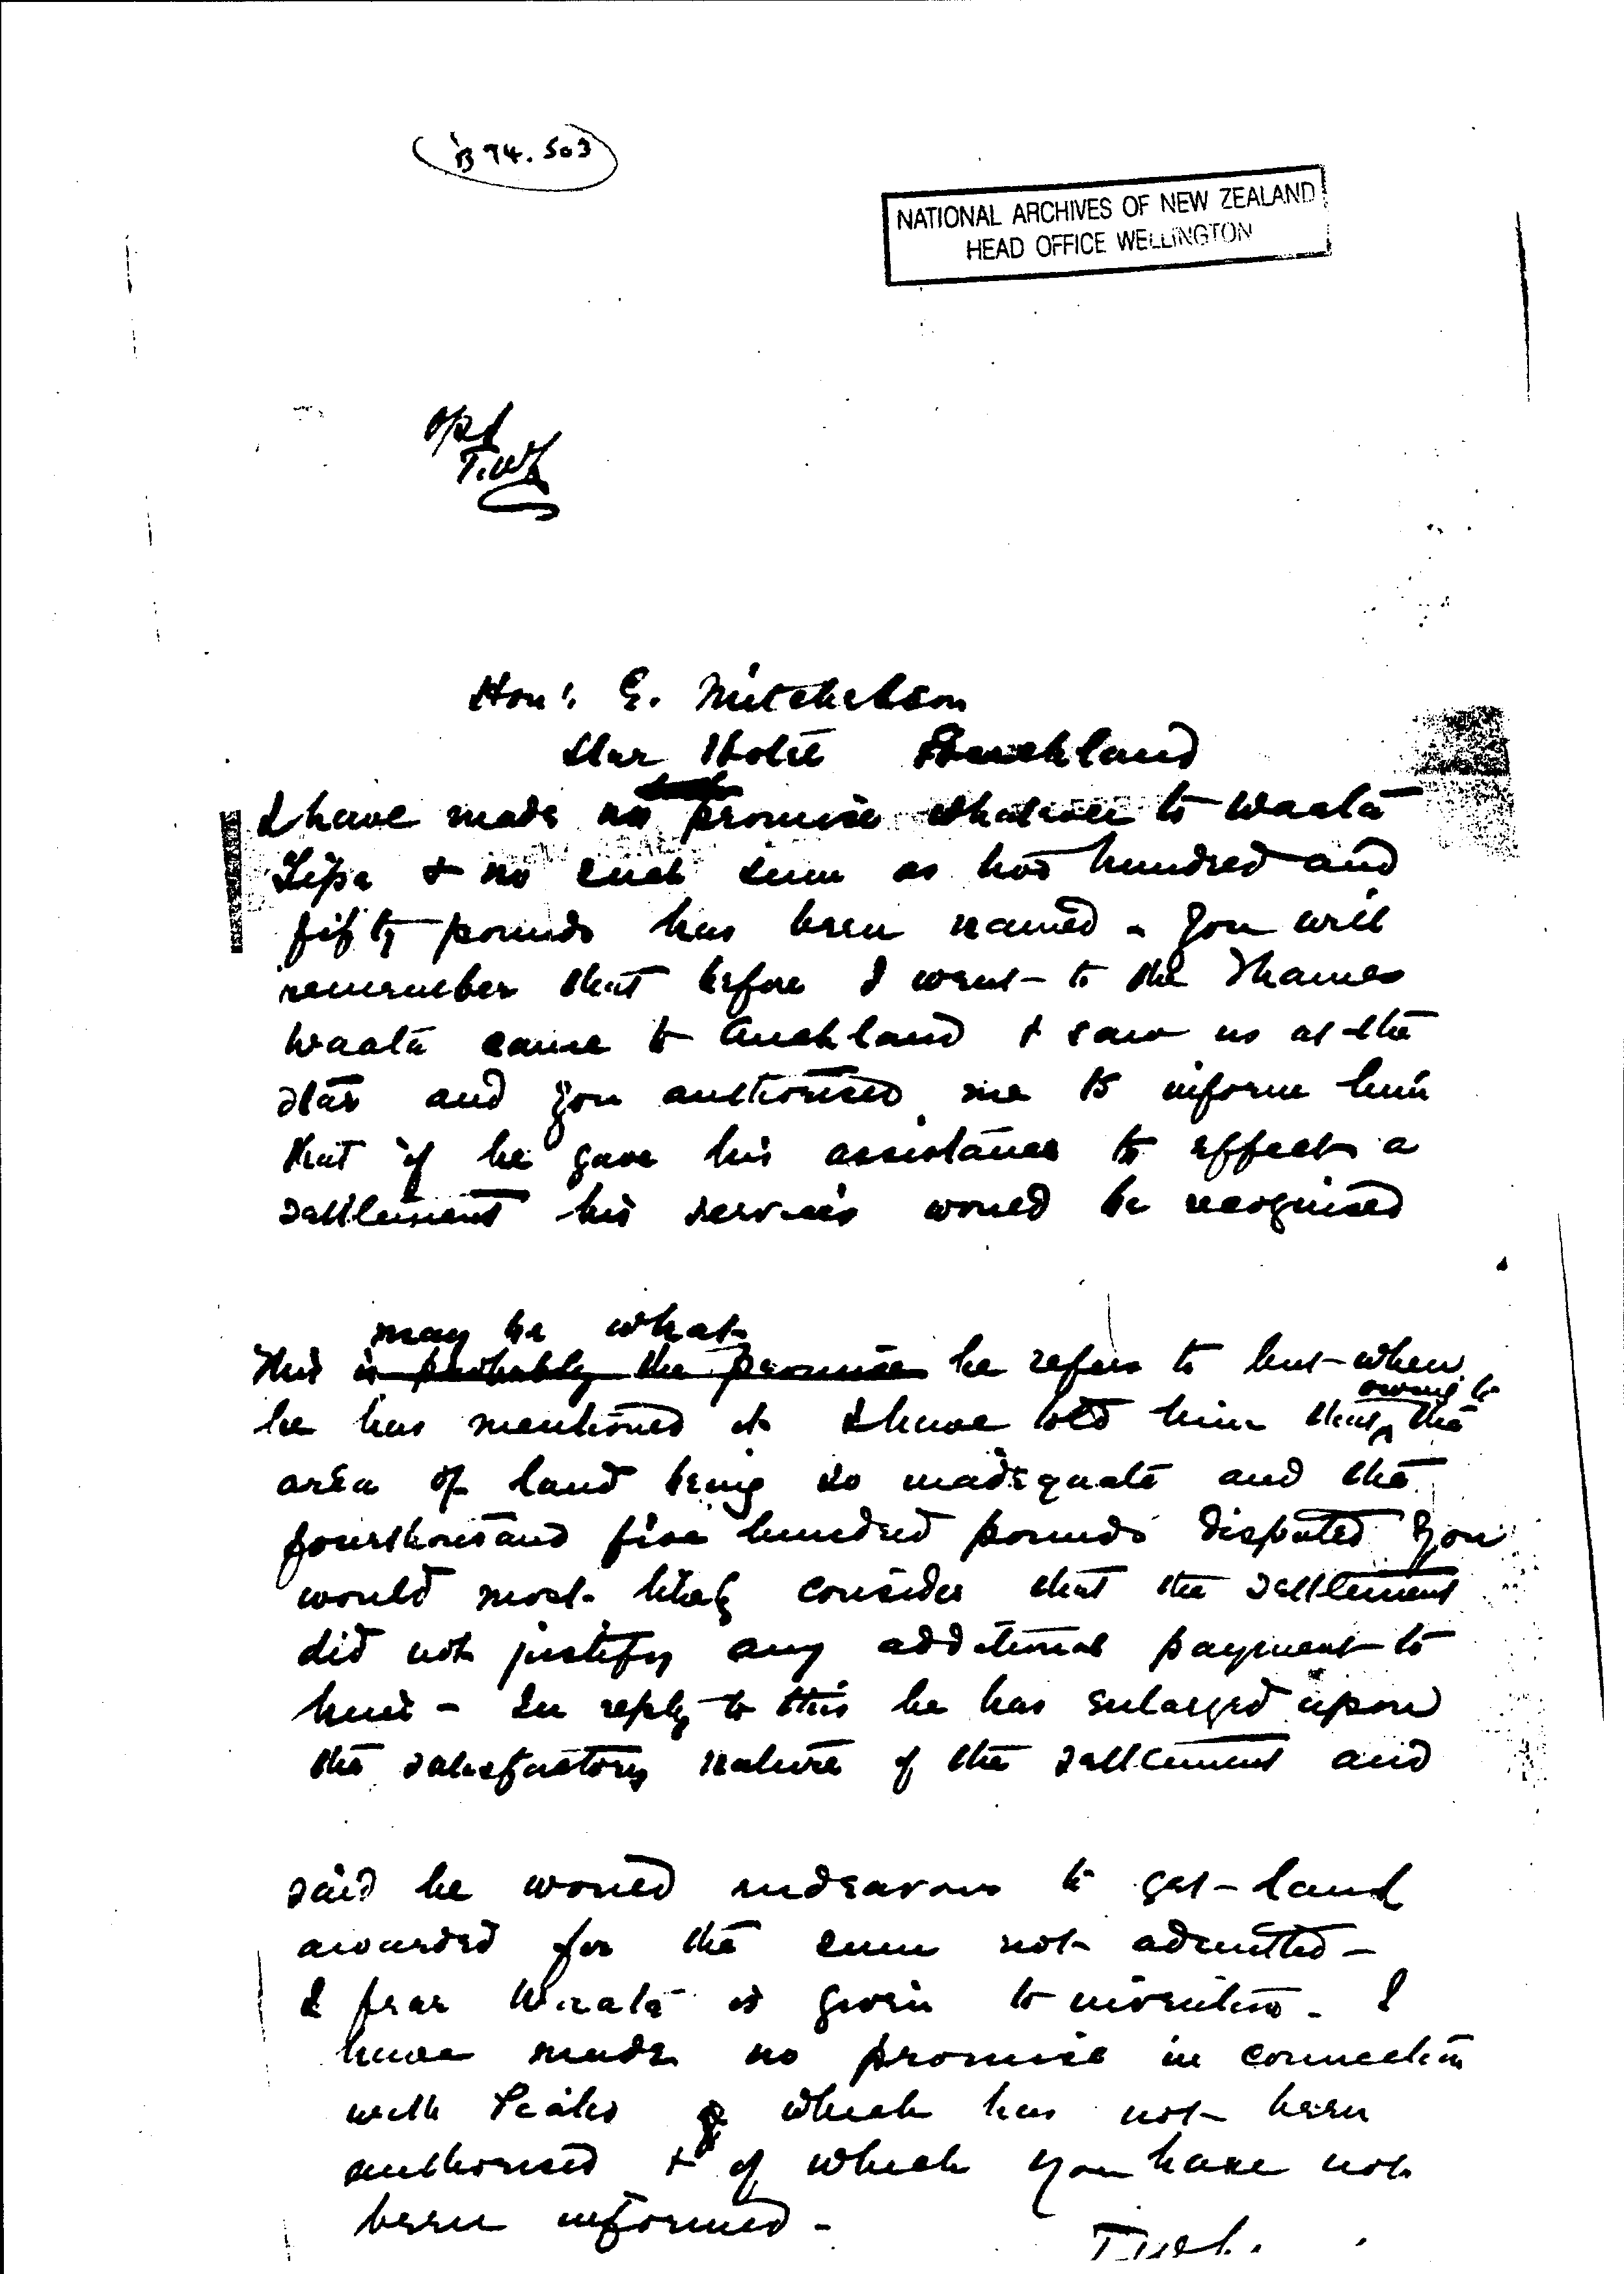 B 94.503
NATIONAL ARCHIVES OF NEW ZEALAND
HEAD OFFICE WELLINGTON
T.W.L
Hon: E. Mitchelson
Star Hotel Auckland
I have made no promise whatever to Waata
Tipa & no such sum as two hundred and
fifty pounds has been named - you will
remember that before I went to the Thames
Waata came to Auckland & saw us at the
Star and you authorised me to inform him
that if he gave his assistance to effect a
settlement his services would be recognised
may be what
This is probably the promise he refers to but when
owing to
he has mentioned it I have told him that the
area of land being so inadequate and the
four thousand five hundred pounds disputed you
would most likely consider that the settlement
did not justify any additional payment to
him - In reply to this he has enlarged upon
the satisfactory nature of the settlement and
said he would endeavour to get land
awarded for the sum not admitted -
I fear Waata is given to invention - I
have made no promise in connection
with Piako which has not been
authorised & of which you have not
been informed -
T.W.L.